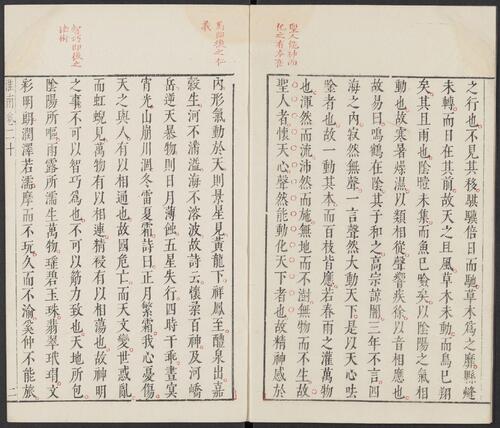 聖人能神而
之行也不見其移騏驥倍日而馳草木為之靡縣熢
未轉而日在其前故天之且風草木未動而鳥已翔
矣其且雨也陰曀未集而魚已噞矣以陰陽之氣相
動也故寒暑燥濕以類相從聲響疾徐以音相應也
故易曰鳴鶴在陰其子和之高宗諒闇三年不言四
海之內寂然無聲一言聲然大動天下是以天心呿
唫者也故一動其本而百枝皆應若春雨之灌萬物
也渾然而流沛然而施無地而不澍無物而不生故
聖人者懷天心聲然能動化天下者也故精神感於
內形氣動於天則景星見黃龍下祥鳳至醴泉出嘉
穀生河不滿溢海不溶波故詩云懷柔百神及河嶠
岳逆天暴物則日月薄蝕五星失行四時干乖晝冥
宵光山崩川涸冬雷夏霜詩曰正月繁霜我心憂傷
天之與人有以相通也故國危亡而天文變世惑亂
而虹蜺見萬物有以相連精祲有以相蕩也故神明
之事不可以智巧為也不可以筋力致也天地所包
陰陽所嘔雨露所濡生萬物瑶碧玉珠翡翠玳瑁文
彩明朗潤澤若濡摩而不玩久而不渝奚仲不能旅
淮南卷二十 二